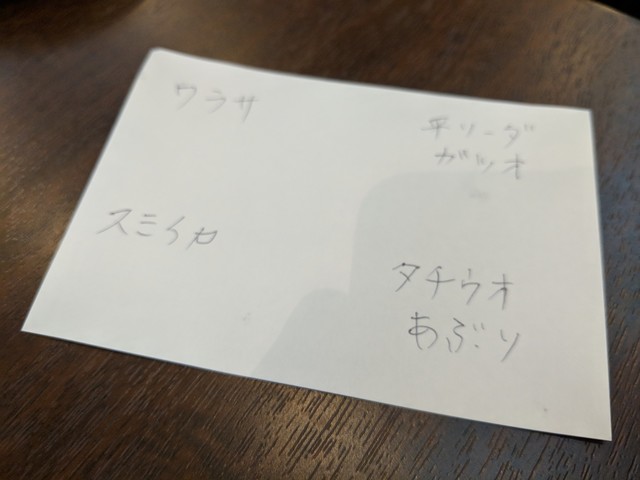 ワラサ
平ソーダ
ガツオ
スミイカ
タチウオ
あぶり